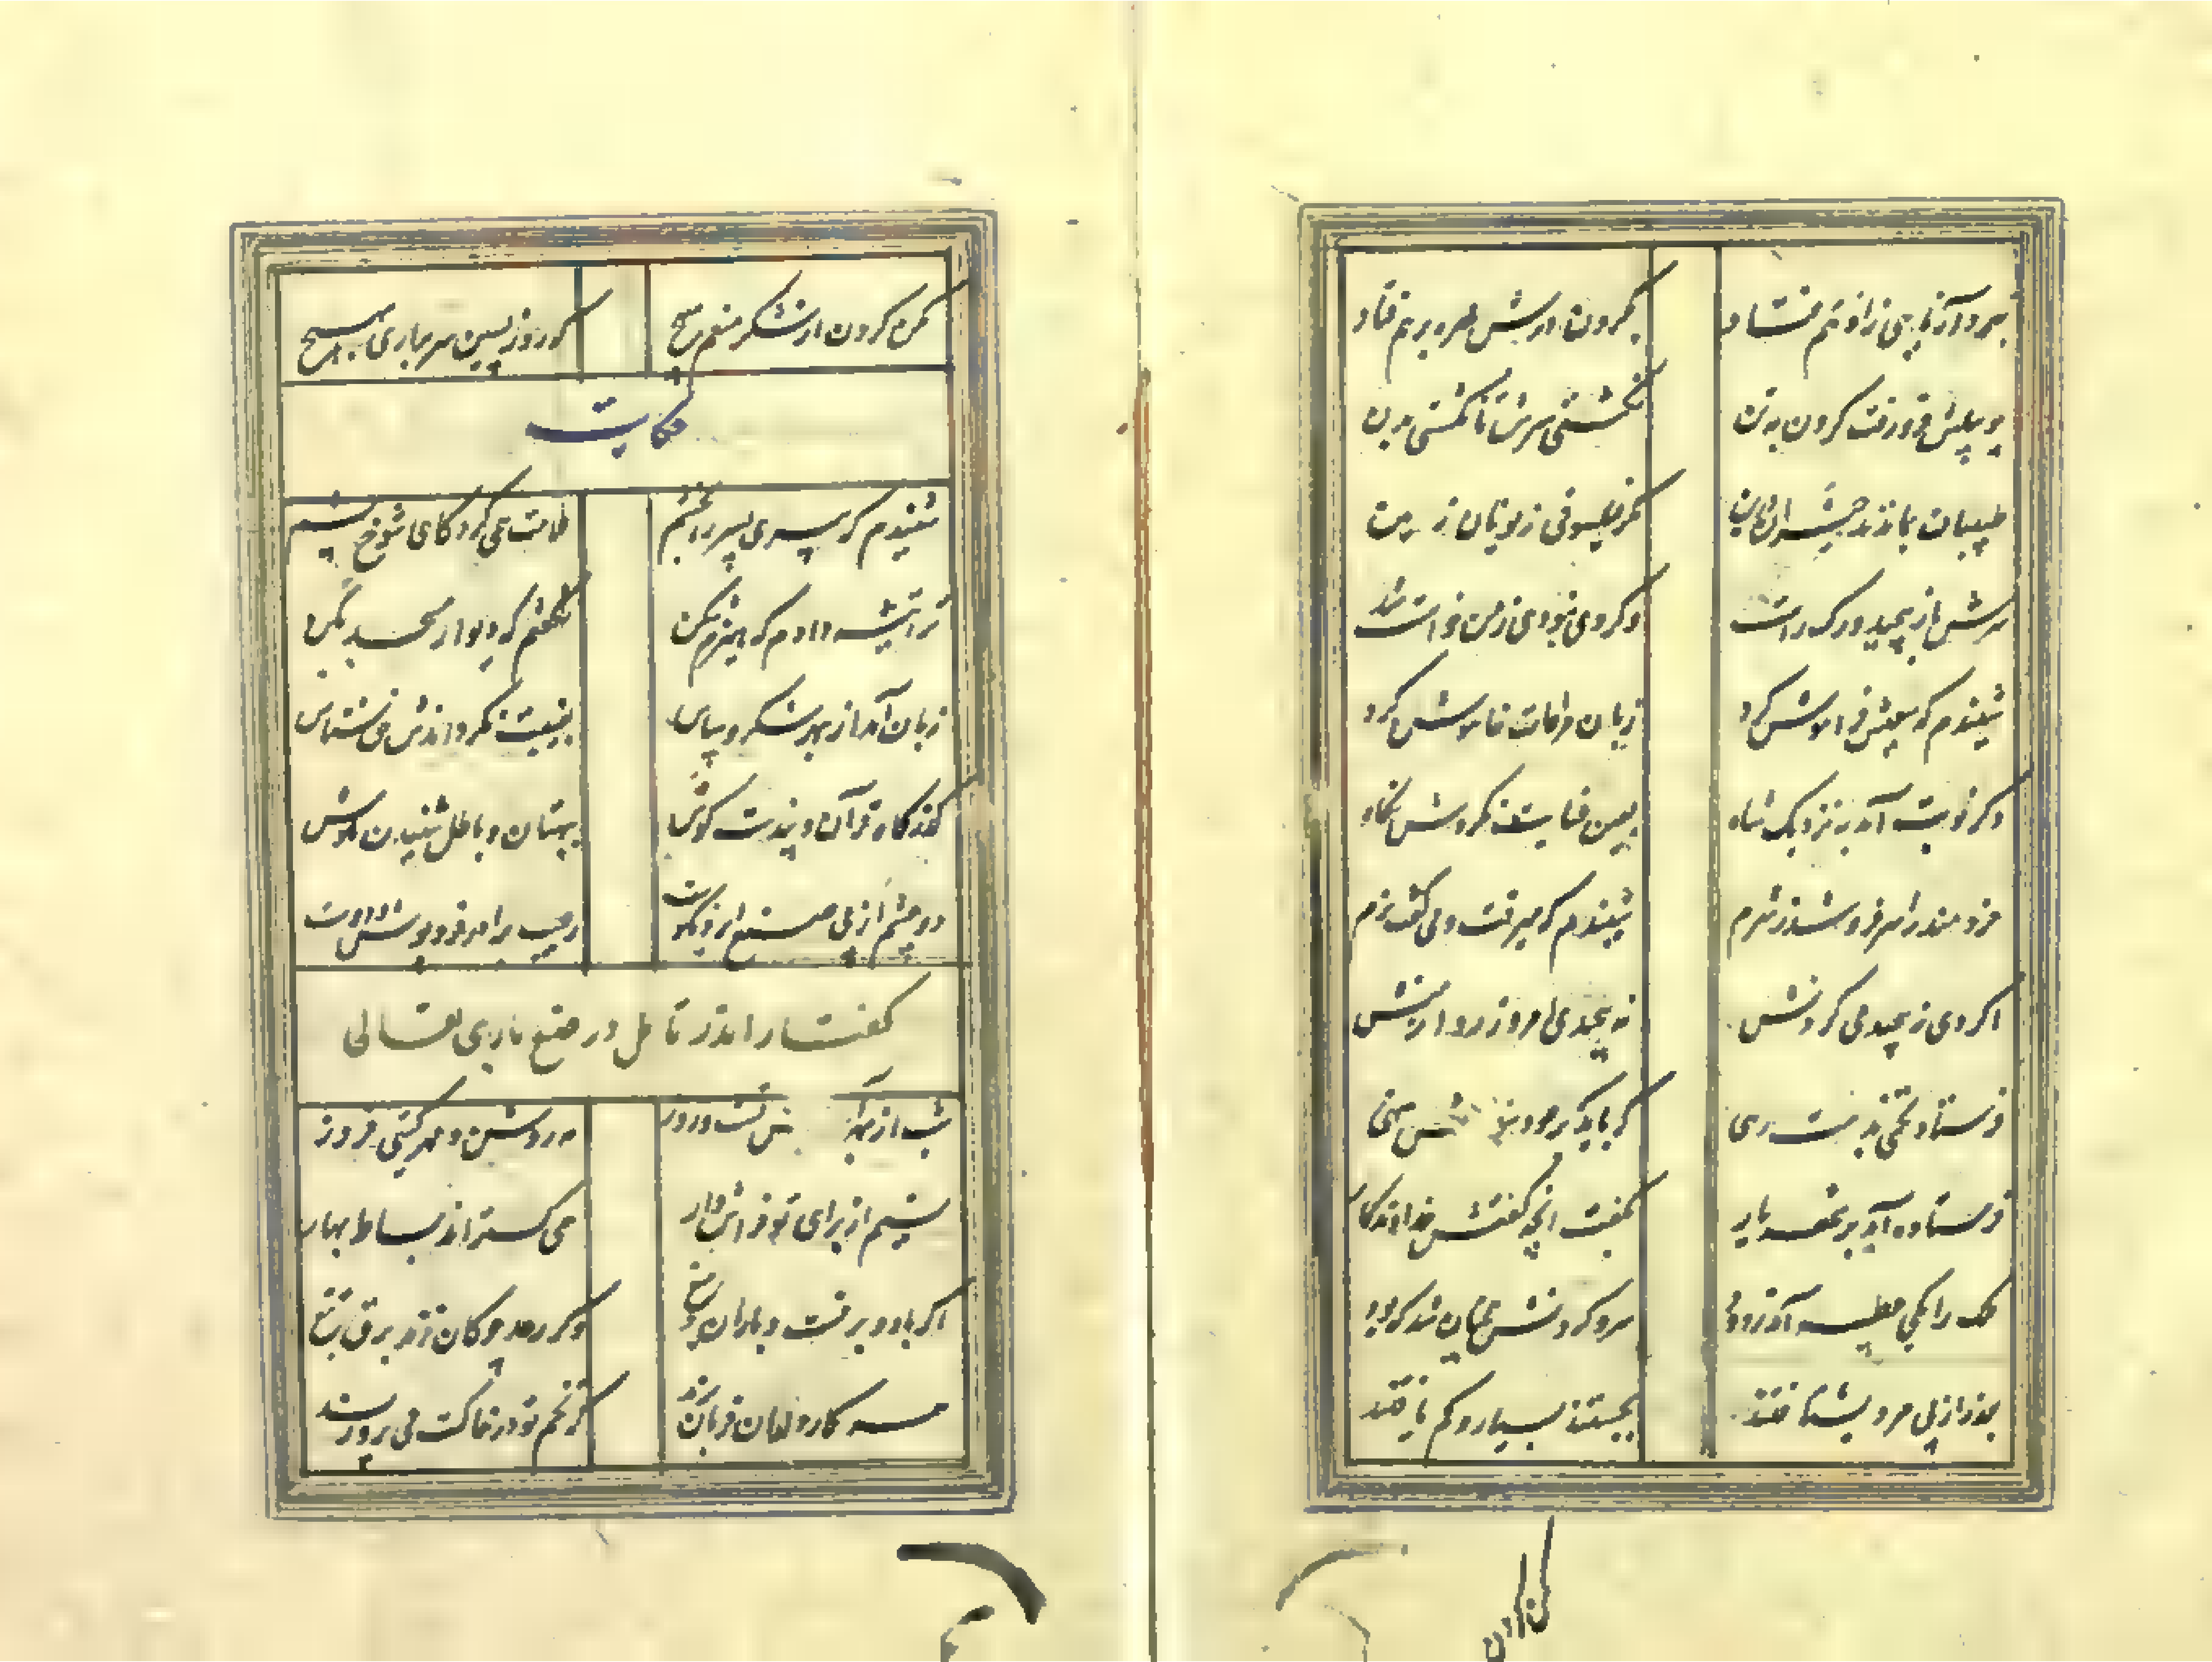 زادهم فتاد بگردن درش مهره برهم فتاد
چو پیلش فرو رفت گردن به تن نگشتی سرش تا نگشتی بدن
طبیبان بماندند حیران درین مگر فیلسوفی ز یونان زمین
سرش باز پیچید و رک راست شد وکر وی نبودی ز من خواست شد
شنیدم که سعیش فراموش کرد زبان مراعات خاموش کرد
دکر نوبت آمد به نزدیک شاه بعین عنایت نکردش نکاه
خردمند را سر فرو شد ز شرم شنیدم که میرفت و می کفت نرم
اکر دی نپیچیدمی کردنش نپیچیدی امروز روی از منش
فرستاد تخمی بدست رهی که باید که بر عود سوزش نهی
فرستاده آمد بر شهریار بکفت انچه کفتش خداوندکار
ملک را یکی عطسه آمد ز دود سر و کردنش همچنان شد که بود
بعذر از پی مرد بشتافتند بجستند بسیار و کم یافتند
مکن کردن
مکن کردن از شکر منعم مپیچ که روز پسین سر براری بهیچ
حکایت
شنیدم که پیری پسر را بخشم ملامت همی کرد کای شوخ چشم
ترا تیشه دادم که هیزم شکن نکفتم که دیوار مسجد بکن
زبان آمد از بهر شکر و سپاس بغیبت نکرداندش حق شناس
کذرکاه قرآن و پندست کوش به بهتان و باطل شنیدن مکوش
دو چشم از پی صنع ایزد نکوست ز عیب برادر فرو پوش و دوست
کفتار اندر تامل در صنع باری تعالی
شب از بهر آسایش تست و روز مه روشن و مهر کیتی فروز
نسیم از برای تو فراش وار همی کستراند بساط بهار
اکر باد و برفست و باران و میغ وکر رعد چوکان زند برق تیغ
همه کارداران فرمان برند که تخم تو در خاک می پرورند